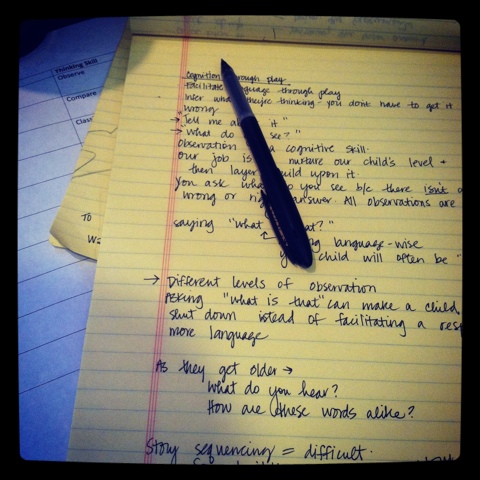 Thinking Skill
Observe
Compare
To
Cognition through play
Facilitate language through play
Infer what they're thinking - you dont have to get it
wrong
→ Tell me it"
→ "What do see?"
Observation a cognitive skill.
Our job is nurture our child's level +
then layer upon it.
You ask you see b/c there isn't
wrong or answer. All observations are
saying "what
language-wise
child will often be "
→ Different levels of observation
Asking "what is that" can make a child
shut down istead of facilitating a
more language
As they get older →
What do you hear?
How are these words alike?
Story sequencing = difficult.